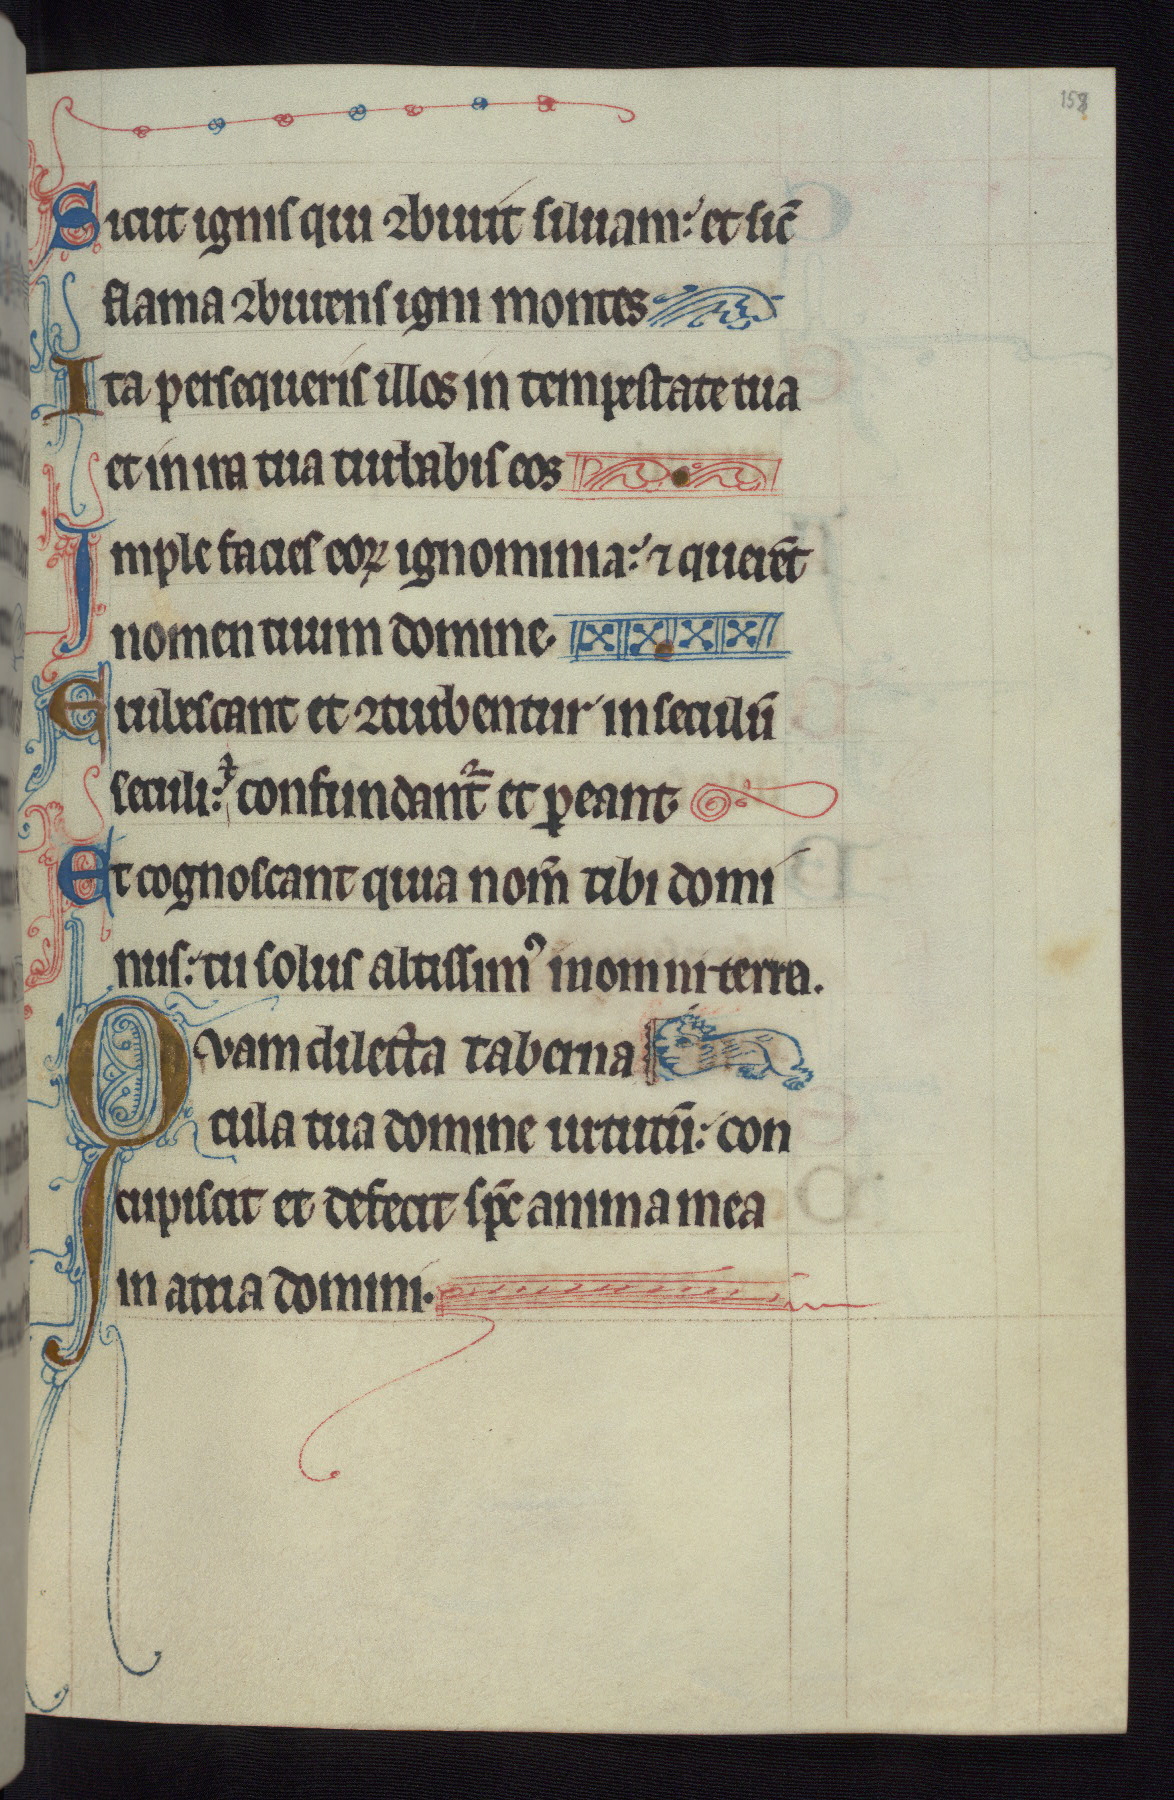 158
Sicut ignis qui ꝯburit siluam: et sic̄
flama ꝯburens igni montes
Ita persequeris illos in tempestate tua
et in ira tua turbabis eos
Imple facies eoꝝ ignominia: ⁊ querēt
nomen tuum domine.
Erubescant et ꝯturbentur in seculū
seculi: ⁊ confundant᷑ et ꝑeant
Et cognoscant quia nom̄ tibi domi
nus: tu solus altissimꝰ in omni terra.
Quam dilecta taberna
cula tua domine uirtutū: con
cupiscit et defecit sp̄c anima mea
in atria domini.